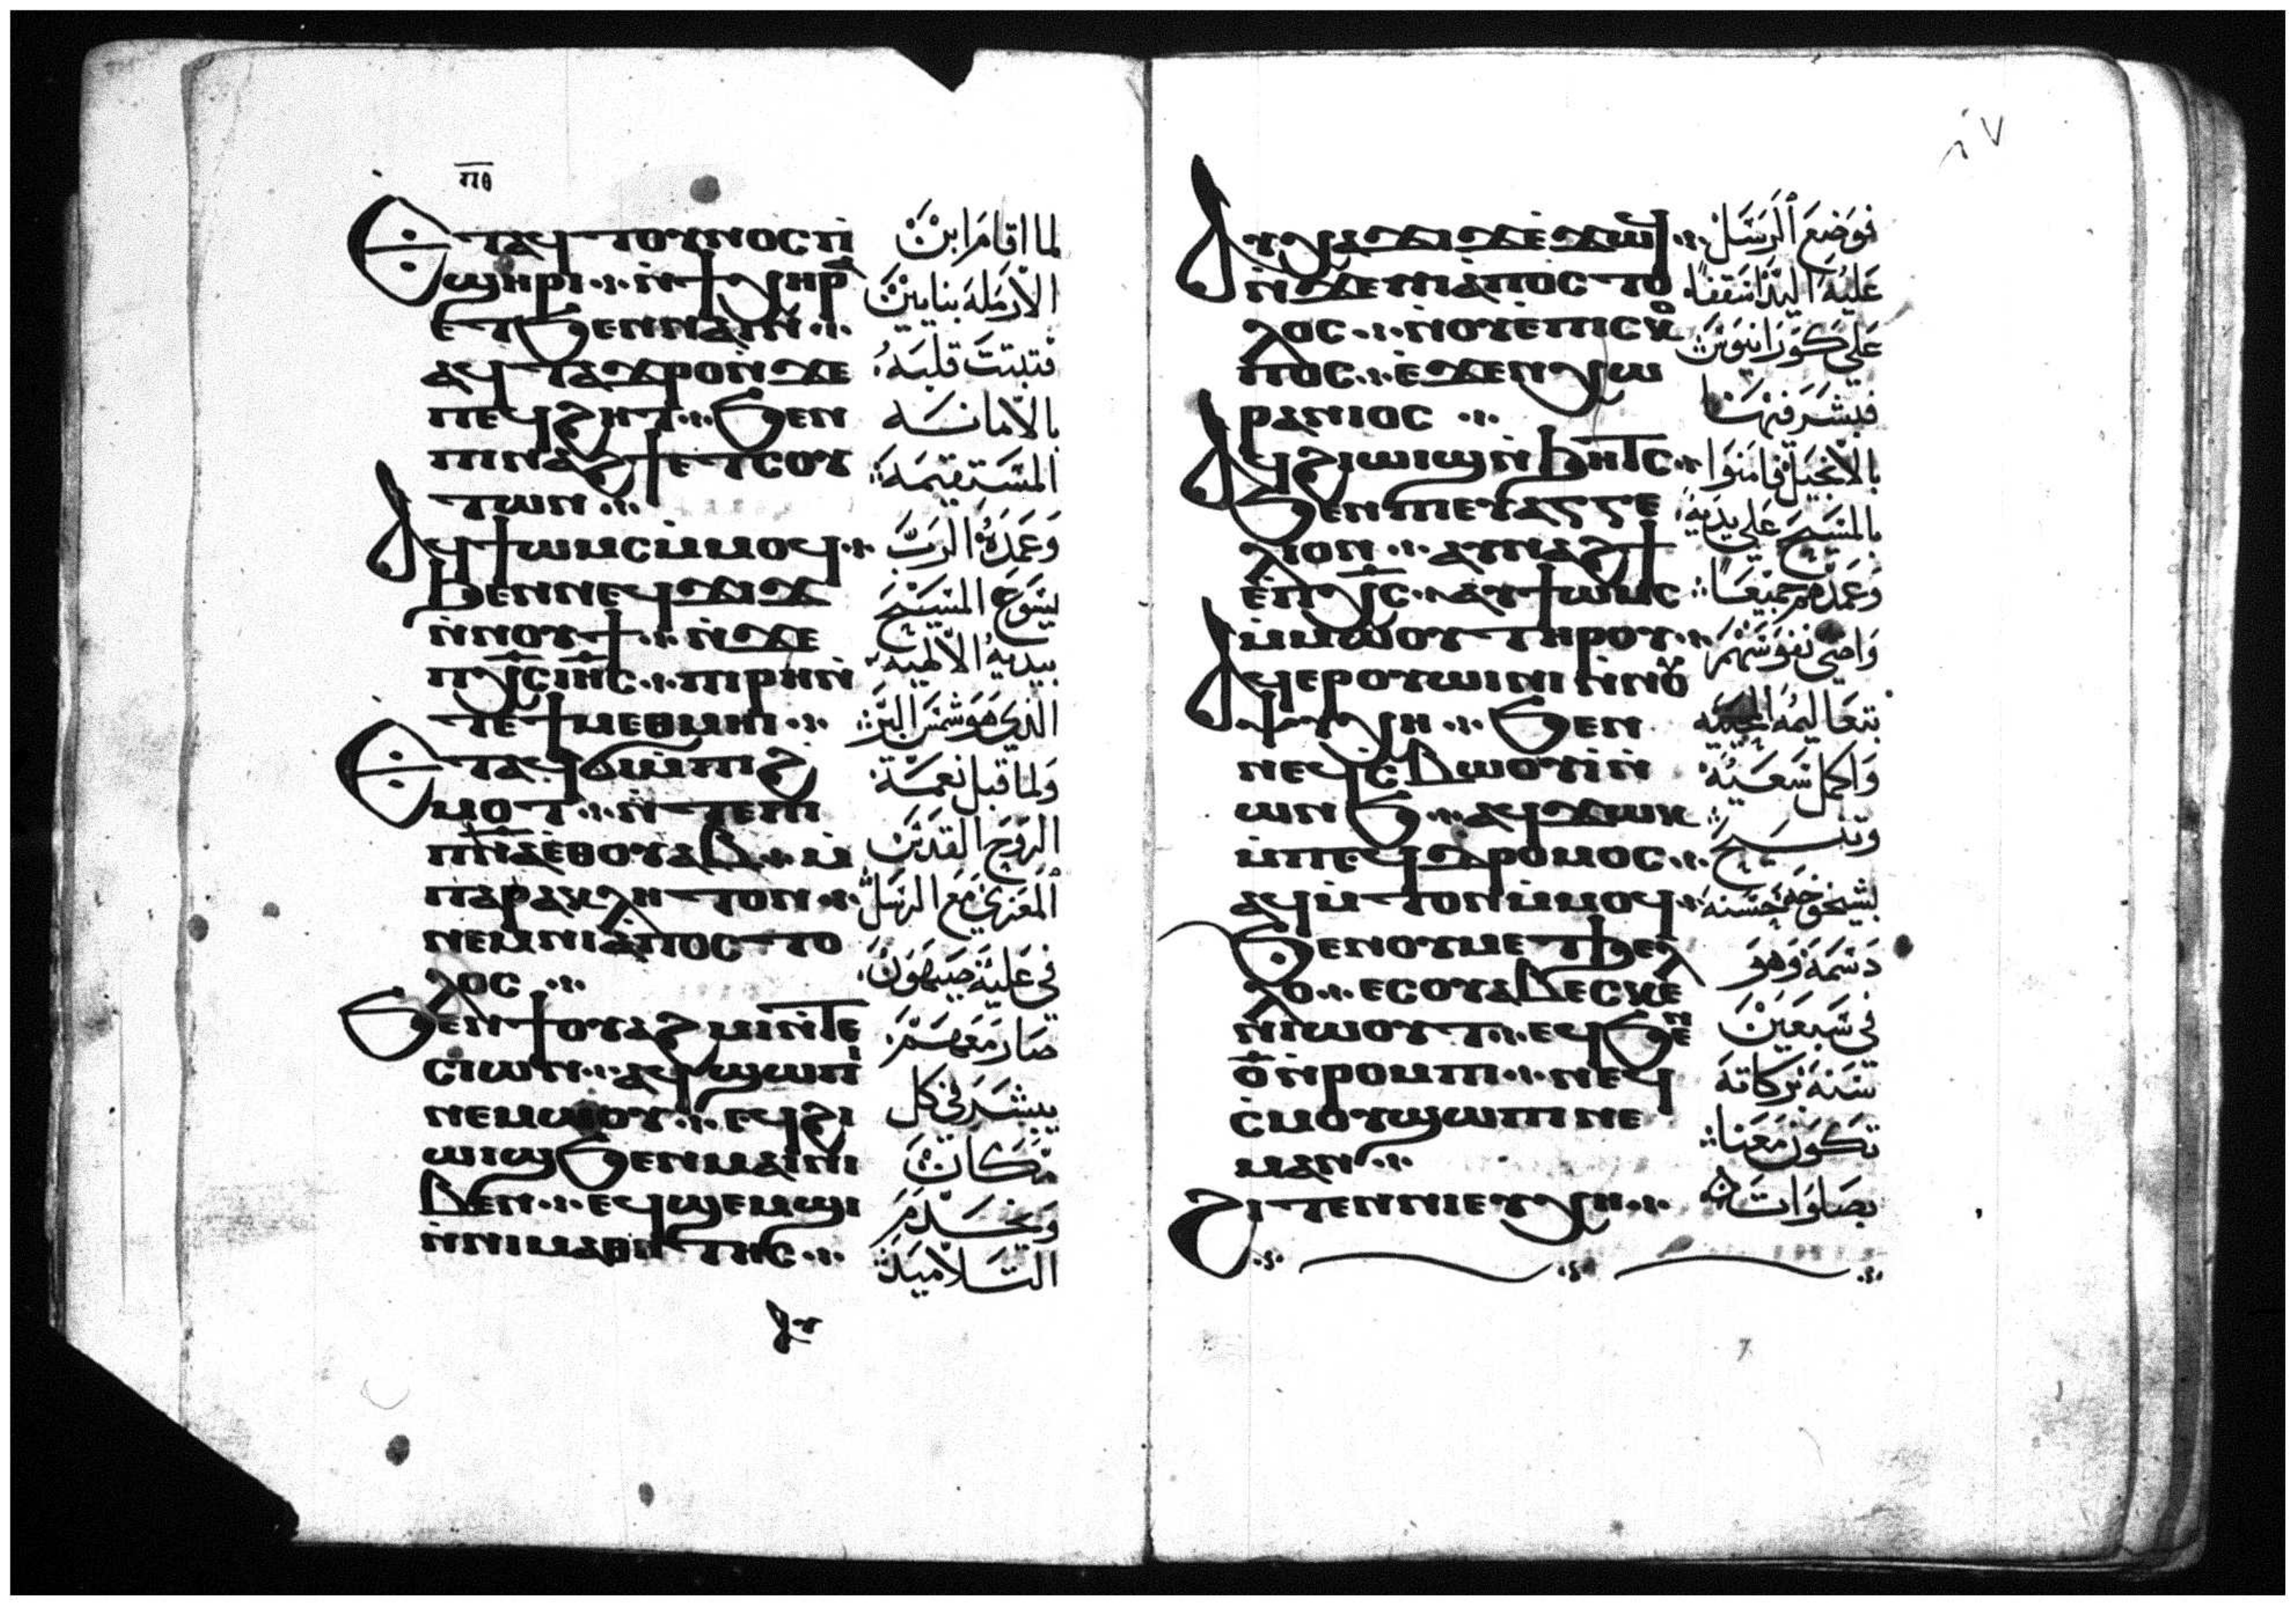 ⲡⲑ
Ⲉⲧⲁϥⲧⲟⲩⲛⲟⲥ ⲡ̀
ϣⲏⲣⲓ ⲛ̀ϯⲭⲏⲣⲁ
ⲉⲧϧⲉⲛ ⲛⲁⲓⲛ
ⲁϥⲧⲁϫⲣⲟ ⲛ̀ϫⲉ
ⲡⲉϥϩⲏⲧ ϧⲉⲛ
ⲡⲓⲛⲁϩϯ ⲉⲧⲥⲟⲩ
ⲧⲱⲛ
Ⲁϥϯⲱⲙⲥ ⲙ̀ⲙⲟϥ
ϧⲉⲛ ⲛⲉϥϫⲓϫ
ⲛ̀ⲛⲟⲩϯ ⲛ̀ϫⲉ
ⲡⲭ̅ⲥ̅ ⲓⲏ̅ⲥ̅ ⲡⲓⲣⲏ ⲛ̀
ⲧⲉ ϯⲙⲉⲑⲙⲏⲓ
Ⲉⲧⲁϥϭⲓ ⲙ̀ⲡⲓϩ
ⲙⲟⲧ ⲛ̀ⲧⲉ ⲡⲓ
ⲡ̅ⲛ̅ⲁ̅ ⲉⲑⲟⲩⲁⲃ ⲙ̀
ⲡⲁⲣⲁⲕⲗⲏⲧⲟⲛ
ⲛⲉⲙ ⲛⲓⲁ̀ⲡⲟⲥⲧⲟ
ⲗⲟⲥ
Ϧⲉⲛ ϯⲟⲩⲁϩⲙⲓ ⲛ̀ⲧⲉ
ⲥⲓⲱⲛ ⲁϥϣⲱⲡⲓ
ⲛⲉⲙⲱⲟⲩ ⲉϥϩⲓ
ⲱⲓϣ ϧⲉⲛ ⲙⲁⲓ ⲛⲓ
ⲃⲉⲛ ⲉϥϣⲉⲙϣⲓ
ⲛ̀ⲛⲓⲙⲁⲑⲏⲧⲏⲥ
ⲁⲩ
لما اقام ابن
الارملة بنايين
فتبتت قلبه
بالامانه
المستقيمة
وعمده الرب
يسوع المسيح
بيديه الالهيه
الذي هو شمس البر
ولما قبل نعمة
الروح القدس
المعزي مع الرسل
في علية صيهون
صار معهم
يبشر في كل
مكان
ويخدم
التلاميذ
Ⲁⲩⲭⲁϫⲓϫ ⲉ̀ϫⲱϥ
ⲛ̀ϫⲉ ⲛⲓⲁ̀ⲡⲟⲥⲧⲟ
ⲗⲟⲥ ⲛ̀ⲟⲩⲉⲡⲓⲥⲕⲟ
ⲡⲟⲥ ⲉ̀ϫⲉⲛ ⲭⲱ
ⲣⲁⲛⲓⲟⲥ
Ⲁϥϩⲓⲱⲓϣ ⲛ̀ϧⲏⲧⲥ
ϧⲉⲛ ⲡⲓⲉⲩⲁⲅⲅⲉ
ⲗⲓⲟⲛ ⲁⲩⲛⲁϩϯ
ⲉ̀ⲡⲭ̅ⲥ̅ ⲁϥϯⲱⲙⲥ
ⲙ̀ⲙⲱⲟⲩ ⲧⲏⲣⲟⲩ
Ⲁϥⲉⲣⲟⲩⲱⲓⲛⲓ ⲛ̀ⲛⲟⲩ
ⲯⲩⲭⲏ ϧⲉⲛ
ⲛⲉϥⲥⲃⲱⲟⲩⲓ ⲛ̀
ⲱⲛϧ ⲁϥϫⲱⲕ
ⲙ̀ⲡⲉϥⲇⲣⲟⲙⲟⲥ
ⲁϥⲙ̀ⲧⲟⲛ ⲙ̀ⲙⲟϥ
Ϧⲉⲛ ⲟⲩⲙⲉⲧϧⲉⲗ
ⲗⲟ ⲉⲥⲟⲩⲁⲃ ⲉⲥⲕⲉ
ⲛⲓⲱⲟⲩⲧ ⲉϥϧⲉⲛ
ⲟ̅ ⲛ̀ⲣⲟⲙⲡⲓ ⲛⲉϥ
ⲥ̀ⲙⲟⲩ ϣⲱⲡⲓ ⲛⲉ
ⲙⲁⲛ
Ϩⲓⲧⲉⲛ ⲛⲓⲉⲩⲭⲏ
فوضع الرسل
عليه اليد اسقفا
علي كورانيوس
فبشر فيها
بالانجيل فامنوا
بالمسيح علي يديه
وعمدهم جميعا
واضى نفوسهم
بتعاليمه المحييه
واكمل سعيه
وتنيح
بشيخوخة حسنه
دسمة وهو
في سبعين
سنة بركاته
تكون معنا
بصلوات